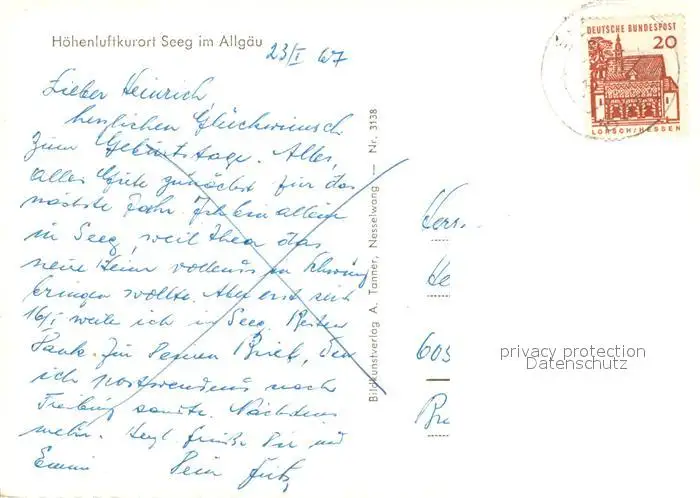 Höhenluftkurort Seeg im Allgäu
23/I 67
Lieber Heinrich,
herzlichen Glückwunsch
zum Geburtstage. Alles,
alles Gute zunächst für das
nächste Jahr. Ich bin allein
in Seeg, weil Thea das
neue Heim vollends in Schwung
bringen wollte. Aber erst seit
16/I weile ich in Seeg. Besten
Dank für Deinen Brief, den
ich postwendend nach
Freiburg sandte. Nächstens
mehr. Herzl. Grüße Dir und
Emmi Dein Fritz
Bildkunstverlag A. Tanner, Nesselwang — Nr. 3138
DEUTSCHE BUNDESPOST
20
LORSCH/HESSEN
Herr
He
605
privacy protection
Datenschutz